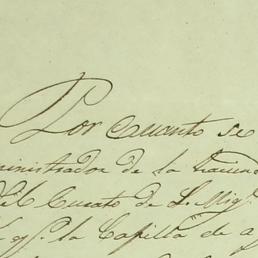 Por cuanto se
ministrador de la hacien
del Curato de S. Mig.
y p.r la Capilla de a